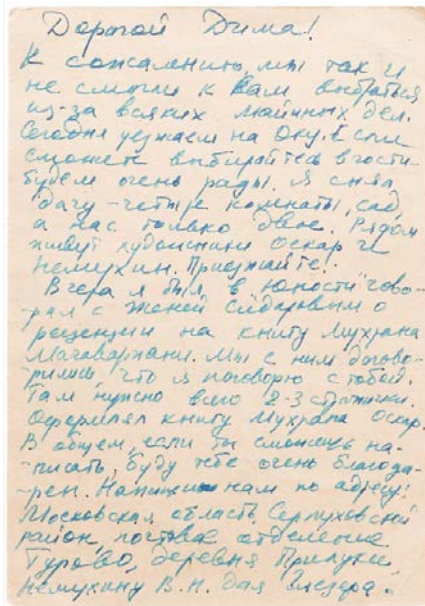 Дорогой Дима!
К сожалению, мы так и
не смогли к вам выбраться
из-за всяких дел.
Сегодня уезжаем на Оку. Если
сможете выбирайтесь в гости-
будем очень рады. Я снял
дачу - четыре комнаты, сад,
а нас только двое. Рядом
живут художники Оскар и
Немухин. Приезжайте.
Вчера я был в "Юности" гово-
рил с Женей Сидоровым о
рецензии на книгу Мухрана
Мачавариани. Мы с ним догово-
рились, что я поговорю с тобой.
Там нужно всего 2-3 странички.
Оформлял книгу Мухрана Оскар.
В общем, если ты сможешь на-
-писать, буду тебе очень благода-
-рен. Напиши нам по адресу:
Московская область, Серпуховский
район, почтовое отделение
Турово, деревня Прилуки,
Немухину В.Н. для